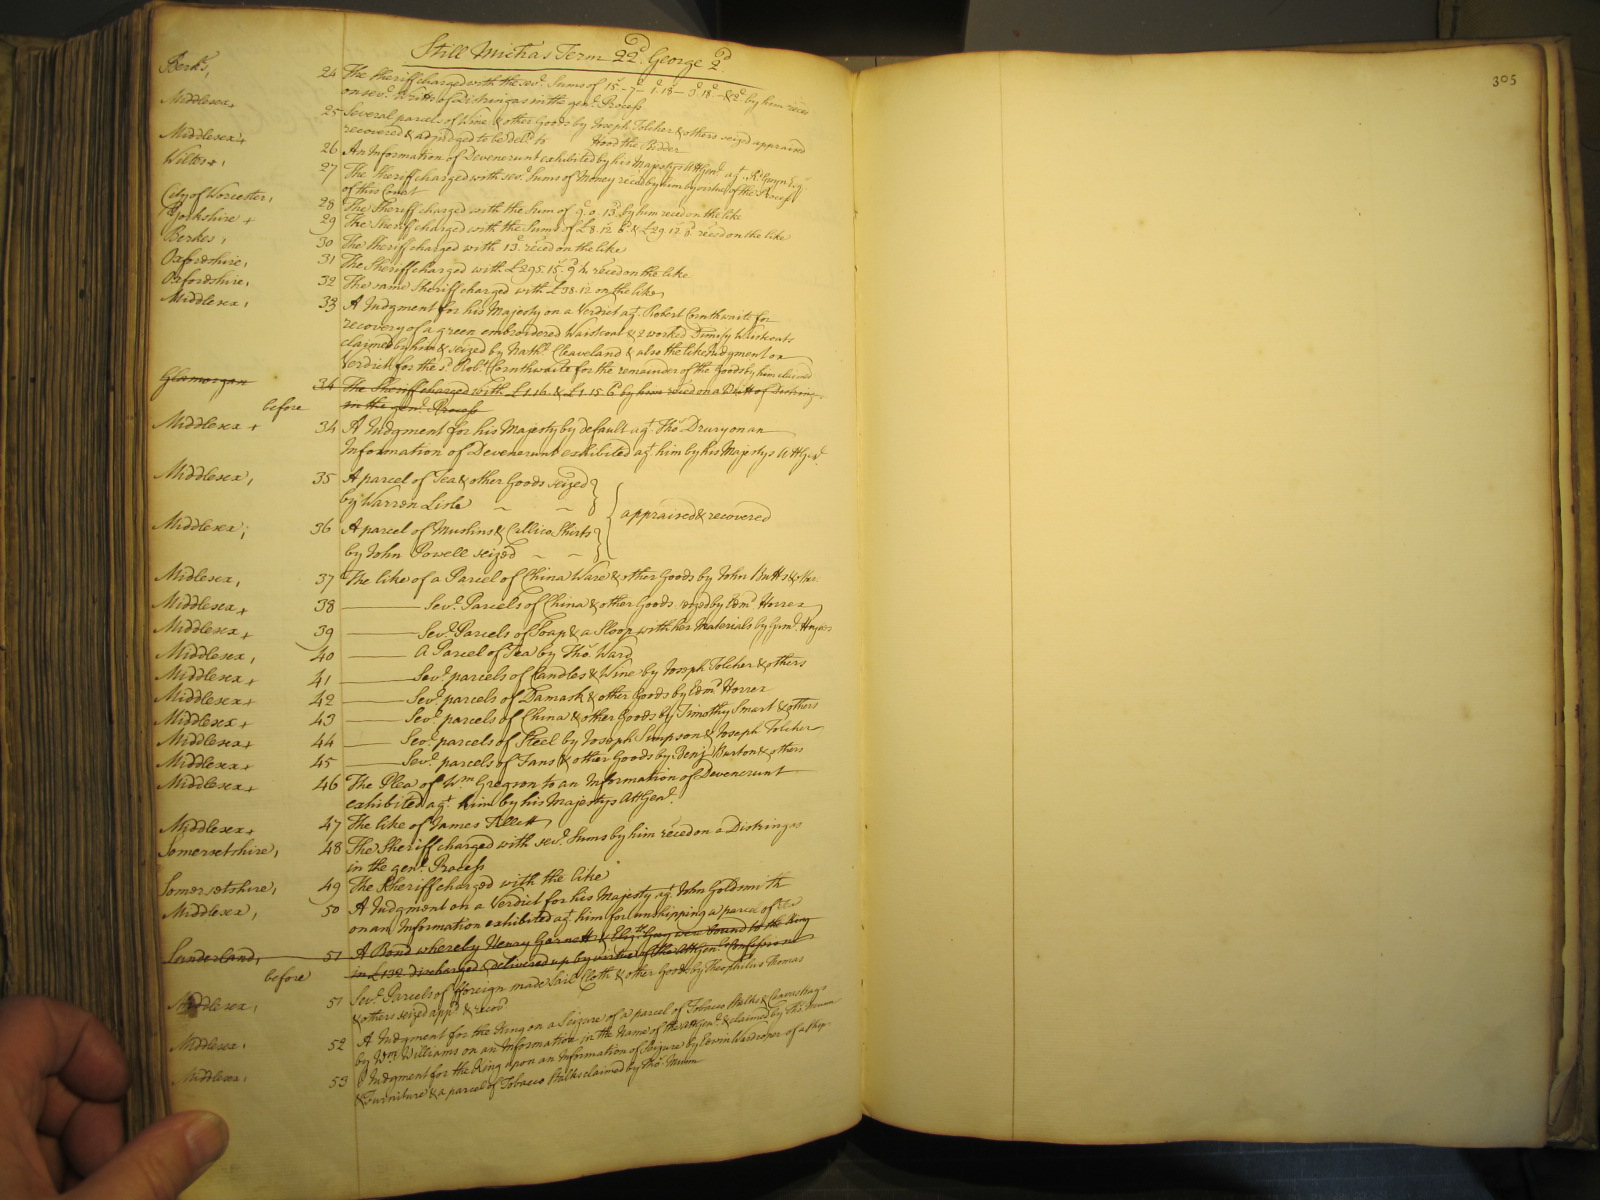 Still Micħas Term 22d. George 2d.
305
Berks, 24 The Sheriff charged with the sevl. Sums of by him reced
on sevl. Writts of Distringas in the genl. Process
Middlesex, 25 Several parcels of Wine & other Goods by Joseph Tolcher & others seized appraised
recovered & adjudged to be deld. to Hood the Bidder
Middlesex+ 26 An Information of Devenerunt exhibited by his Majestys Att Genl. agt. Rd. Gwyn Esqr.
Wilts+, 27 The Sheriff charged with sevl. Sums of Money reced by him by virtue of the Process
of this Court
City of Worcester, 28 The Sheriff charged with the Sum of 9. 0. 13. by him reced on the like
Yorkshire + 29 The Sheriff charged with the Sums of £8.12.6. & £29.12.8. reced on the like
Berkes, 30 The Sheriff charged with 13. reced on the like
Oxfordshire, 31 The Sheriff charged with £295.15.9 reced on the like
Oxfordshire, 32 The same Sheriff charged with £38.12 on the like
Middlesex, 33 A Judgment for his Majesty on a Verdict agt. Robert Cornthwaite for
recovery of a green embrordered Waistcoat & 2 worked Dimity Waistcoats
claimed by him & seized by Nathl. Cleaveland & also the like Judgment on a
Verdict for the sd. Robt. Cornthwaite for the remainder of the Goods by him claimed
Glamorgan 34 The Sheriff charged with £1.16. & £1.15.6. by him reced on a Writt of Distring.
before in the genl. Process
Middlesex + 34 A Judgment for his Majesty by default agt. Thos. Drury on an
Information of Devenerunt exhibited agt. him by his Majestys Att Genl.
Middlesex, 35 A parcel of Tea & other Goods seized
by Warren Lisle
appraised & recovered
Middlesex, 36 A parcel of Muslins & Callico Shirts
by John Powell seized
Midlesex, 37 The like of a Parcel of China Ware & other Goods by John Butts & other
Middlesex+ 38 Sevl. Parcels of China & other Goods seized by Edmd. Horrex
Middlesex+ 39 Sevl. Parcels of Soap & a Sloop with her Materials by
Middlesex, 40 A Parcel of Tea by Thos. Ward
Middlesex+ 41 Sevl. parcels of Candles & Wine by Joseph Tolcher & others
Middlesex+ 42 Sevl. parcels of Damask & other Goods by Edmd. Horrex
Middlesex+ 43 Sevl. parcels of China & other Goods by Timothy Smart & others
Middlesex+ 44 Sevl. parcels of Steel by Joseph Simpson & Joseph Tolcher
Middlesex+ 45 Sevl. parcels of Fans & other Goods by Benj. Burton & others
Middlesex+ 46 The Plea of Wm. Gregson to an Information of Devenerunt
exhibited agt. him by his Majestys Att Genl.
Middlesex+ 47 The like of James Allett
Somersetshire, 48 The Sheriff charged with sevl. Sums by him reced on a Distringas
in the genl. Process
Somersetshire, 49 The Sheriff charged with the like
Middlesex, 50 A Judgment on a Verdict for his Majesty agt. John Goldsmith
on an Information exhibited agt. him for unshipping a parcel of Tea
Sunderland, 51 A Bond whereby Henry Garnett & Elizth. Gray were bound to the King
in £132 discharged & delivered up by virtue of the Att Genl. Confession
before
Middlesex, 51 Sevl. Parcels of foreign made Sail Cloth & other Goods by Theophilus Thomas
& others seized appd. & recovd
Middlesex, 52 A Judgment for the King on a Seizure of a parcel of Tobacco Stalks & Canvas bags
by Wm. Williams on an Information in the Name of the Att Genl. & claimed by Thos. Mumm
Middlesex, 53 A Judgment for the King upon an Information of Seizure by Edwin Wardroper of a Ship
& Furniture & a parcel of Tobacco Stalks claimed by Thos. Mumm